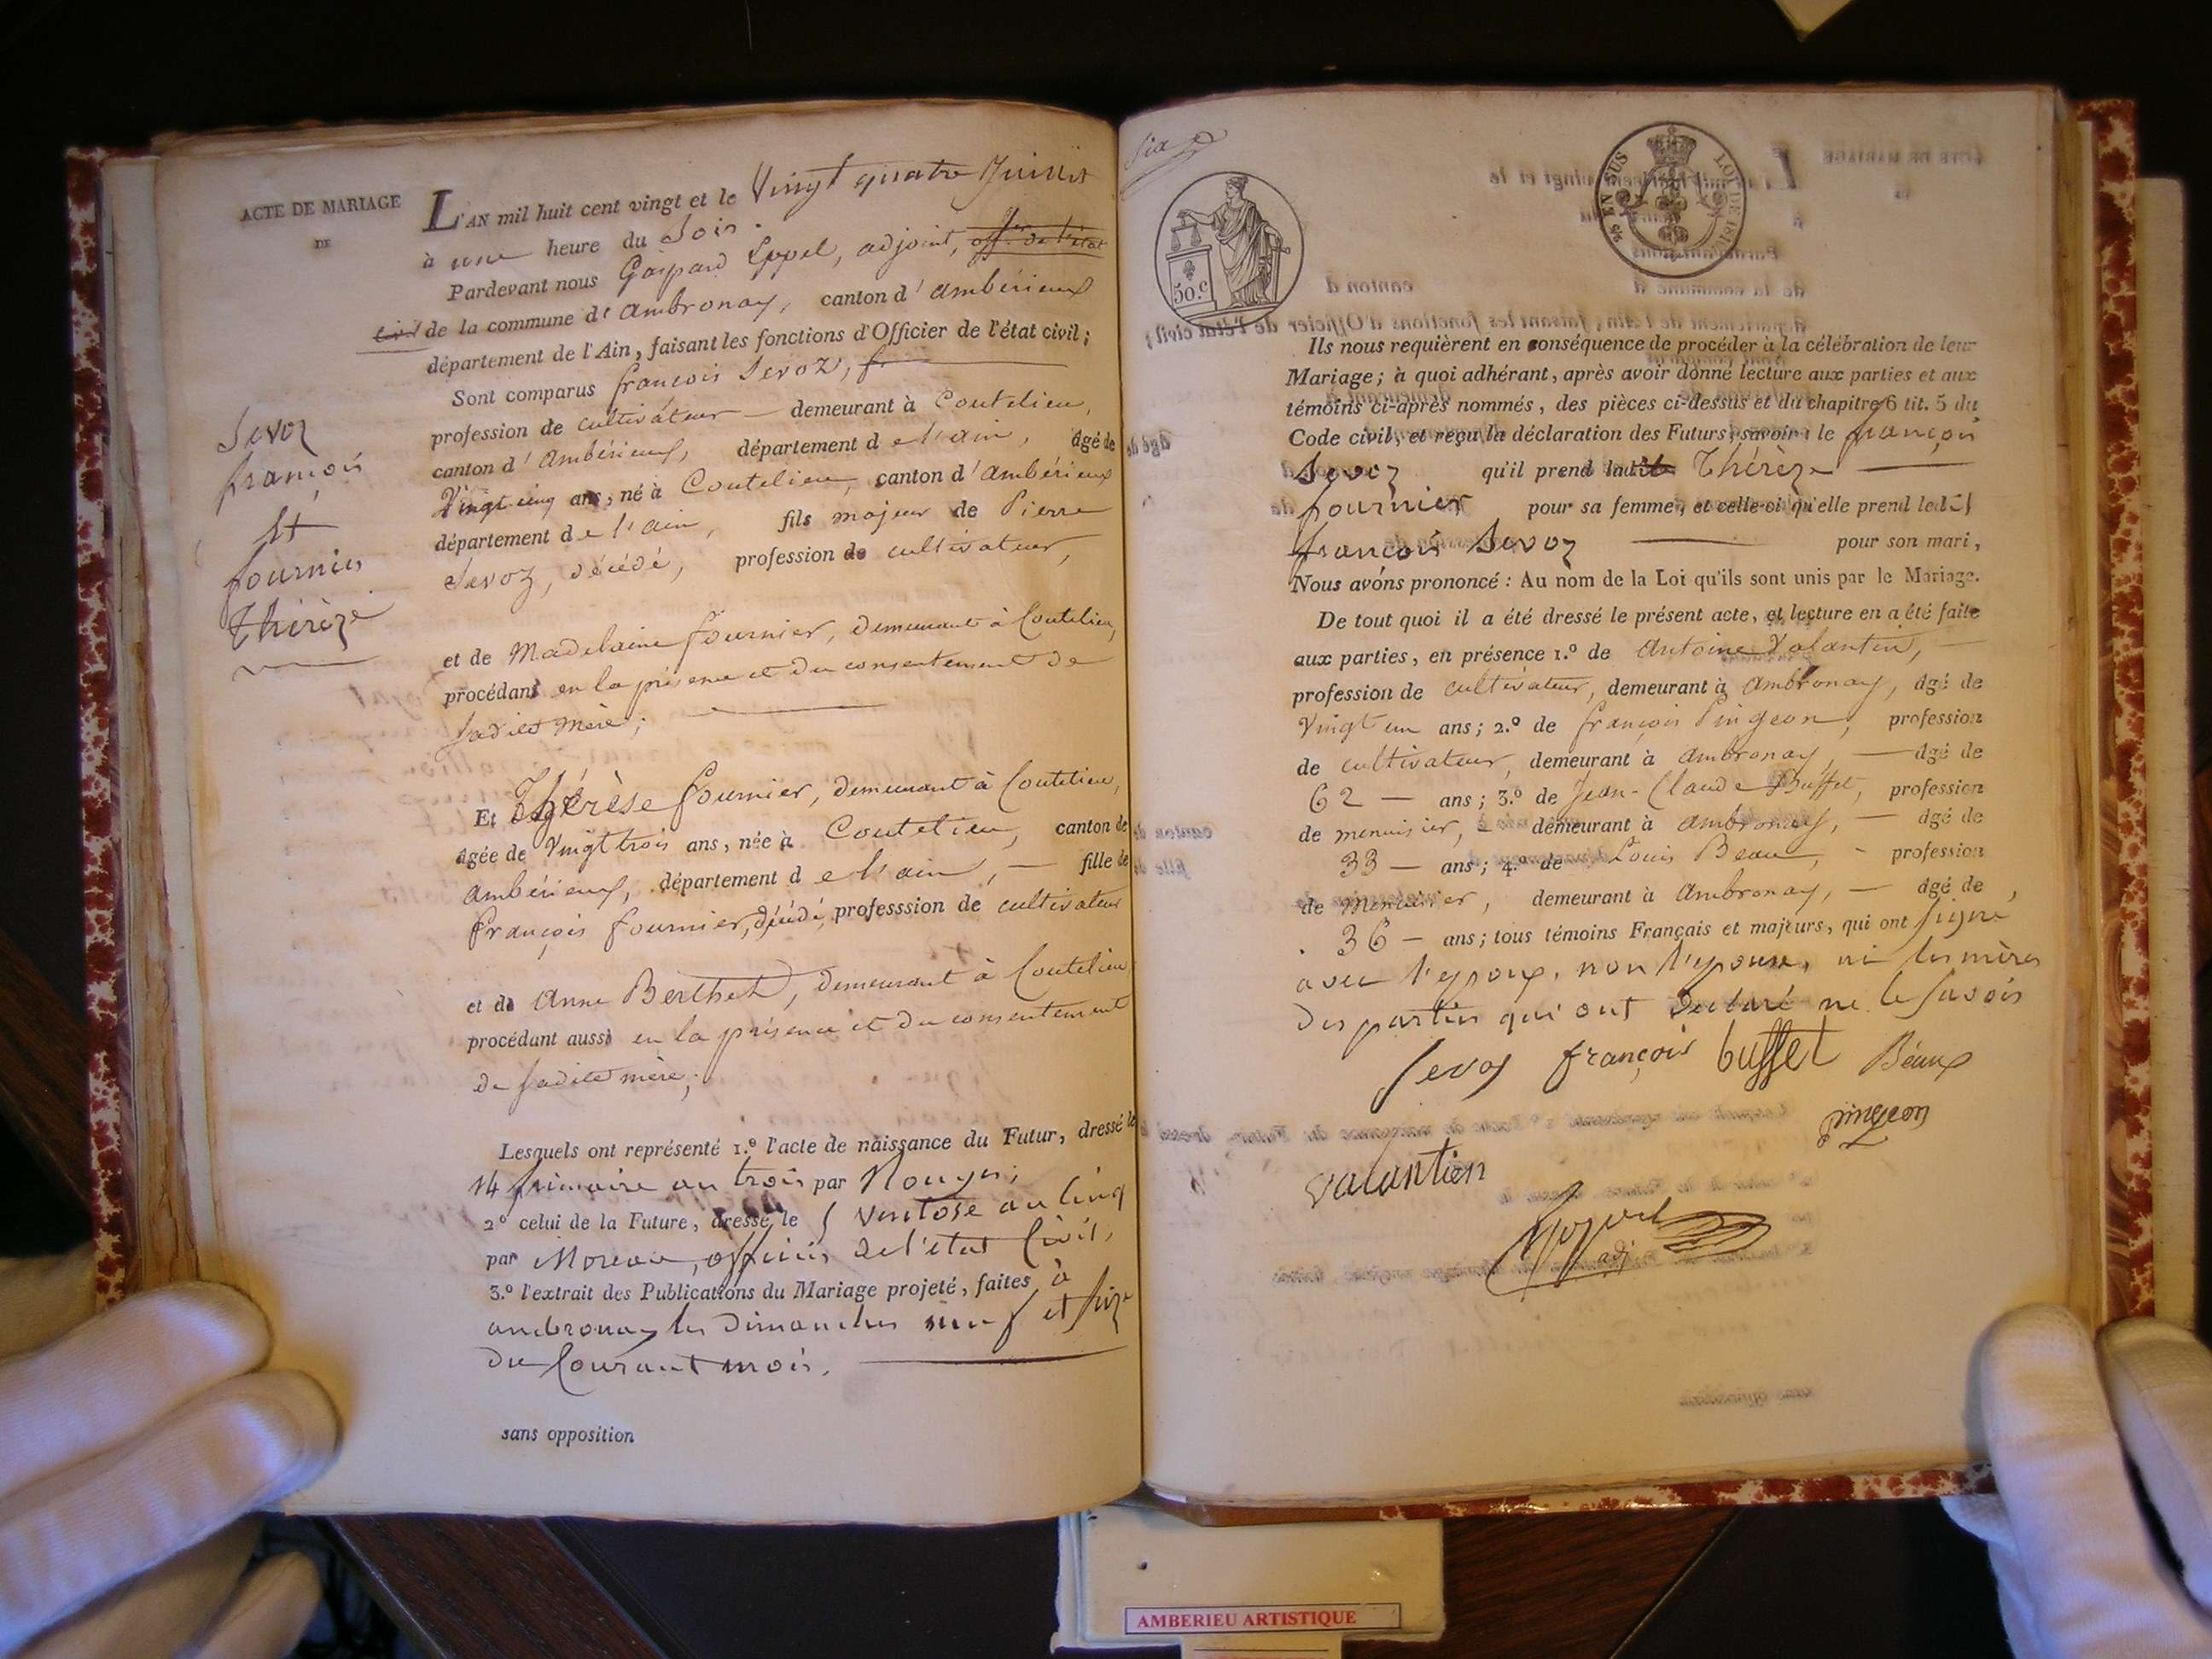 ACTE DE MARIAGE
DE
Sevoz
françois
et
fournier
Thérèze
L'AN mil huit cent vingt et le Vingt quatre Juillet
à une heure du Soir.
Pardevant nous Gaspard adjoint, off.er de l'état
civil de la commune d'Ambronay, canton d'ambérieux
département de l'Ain, faisant les fonctions d'Officier de l'état civil;
Sont comparus françois Sevoz,
profession de cultivateur demeurant à Coutelieu,
canton d'ambérieux, département de l'ain, âgé de
Vingt cinq ans, né à Coutelieu, canton d'ambérieux
département de l'ain, fils majeur de Pierre
Sevoz, décédé, profession de cultivateur,
et de Madelaine fournier, demeurant à Coutelieu,
procédant en la présence et du consentement de
sadite mère;
Et Thérèse fournier, demeurant à Coutelieu,
âgée de Vingt trois ans, née à Coutelieu, canton de
ambérieux, département de l'ain, fille de
françois fournier, décédé, professsion de cultivateur
et de Anne Berthet, demeurant à Coutelieu
procédant aussi en la présence et du consentement
de sadite mère;
Lesquels ont représenté 1.º l'acte de naissance du Futur, dressé le
14 frimaire an trois par
2º celui de la Future, dressé le 5 Ventose an cinq
par Moreau, officier de l'état civil,
3.º l'extrait des Publications du Mariage projeté, faites à
ambronay les Dimanches neuf et seize
du Courant mois.
sans opposition
Six
50.c
EN SUS
LOI DE 1816
Ils nous requièrent en conséquence de procéder à la célébration de leur
Mariage; à quoi adhérant, après avoir donné lecture aux parties et aux
témoins ci-après nommés, des pièces ci-dessus et du chapitre 6 tit. 5 du
Code civil, et reçu la déclaration des Futurs, savoir: le françois
Sevoz qu'il prend ladite Thérèze
fournier pour sa femme, et celle-ci qu'elle prend led.
françois Sevoz pour son mari,
Nous avons prononcé: Au nom de la Loi qu'ils sont unis par le Mariage.
De tout quoi il a été dressé le présent acte, et lecture en a été faite
aux parties, en présence 1.º de Antoine Valantin,
profession de cultivateur, demeurant à Ambronay, âgé de
Vingt un ans; 2.º de françois Pingeon, profession
de cultivateur, demeurant à Ambronay, âgé de
62 ans; 3.º de Jean-Claude Buffet, profession
de menuisier, demeurant à Ambronay, âgé de
33 ans; 4.º de Louis Beau, profession
de Menuisier, demeurant à Ambronay, âgé de
36 ans; tous témoins Français et majeurs, qui ont signé
avec l'époux, non l'épouse, ni les mères
des parties qui ont déclaré ne le savoir
Sevoz françois buffet Béaux
pingeon
valantien
adj
AMBERIEU ARTISTIQUE